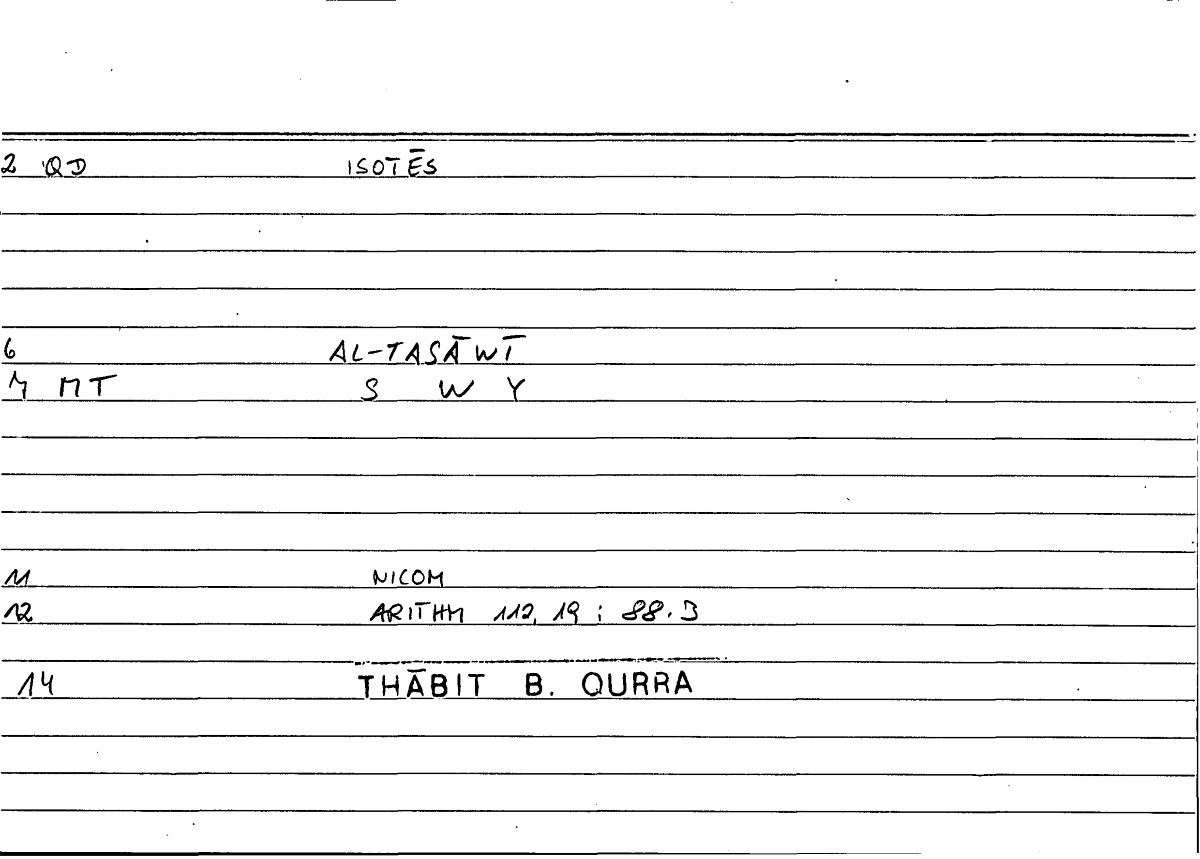 2 QD ISOTĒS
6 AL-TASĀWĪ
7 MT S W Y
11 NICOM
12 ARITHM 112, 19 ; 88.3
14 THĀBIT B. QURRA